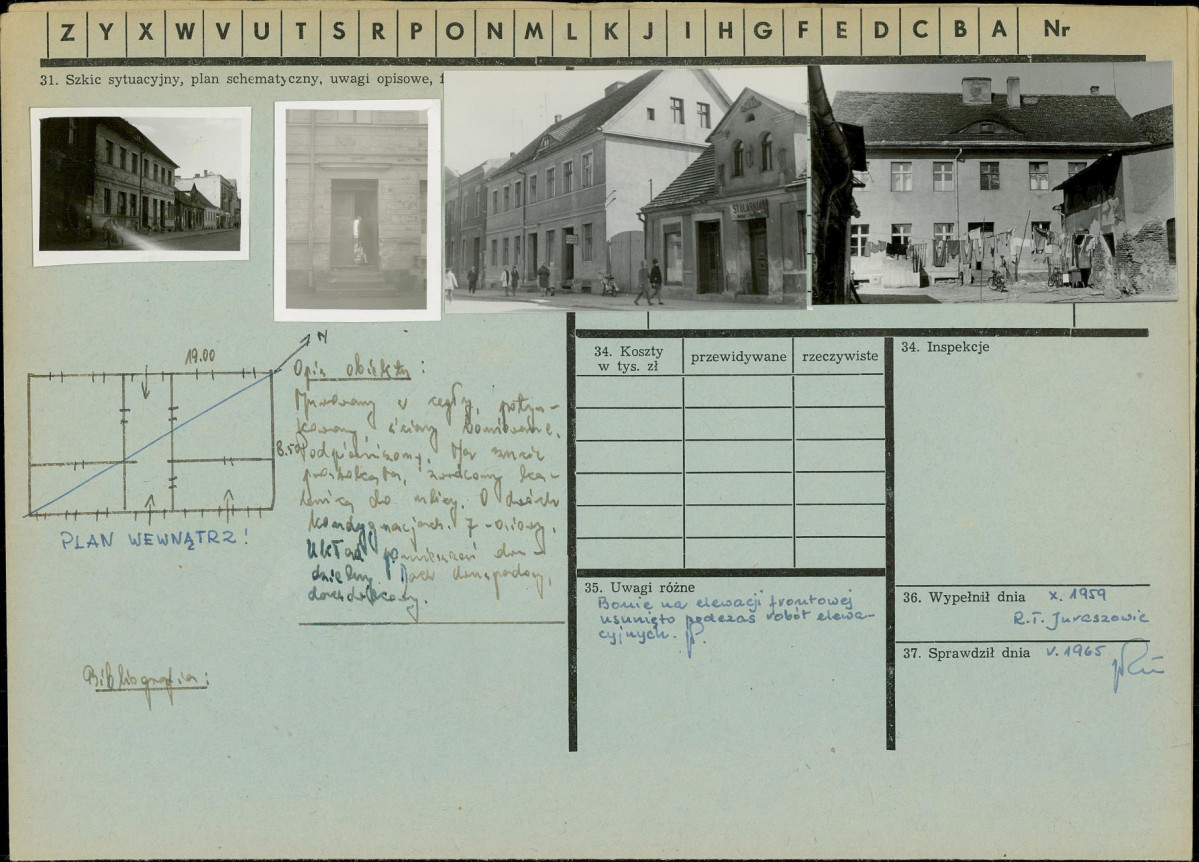 Z Y X W V U T S R P O N M L K J I H G F E D C B A Nr
31. Szkic sytuacyjny, plan schematyczny, uwagi opisowe, f
STOLARNIA
N
19.00
8.50
PLAN WEWNĄTRZ!
Opis obiektu:
Murowany z cegły, potyn-
kowany ściany boniowane.
Podpiwniczony. Na rzucie
prostokąta, zwrócony ka-
lenicą do ulicy. O dwóch
kondygnacjach. 7-osiowy.
Układ pomieszczeń dwu-
dzielny. Dach dwuspadowy,
Bibliografia:
34. Koszty
w tys. zł
przewidywane
rzeczywiste
34. Inspekcje
35. Uwagi różne
Bonie na elewacji frontowej
usunięto podczas robót elewa-
cyjnych.
36. Wypełnił dnia X. 1959
R.T. Juraszowie
37. Sprawdził dnia V. 1965